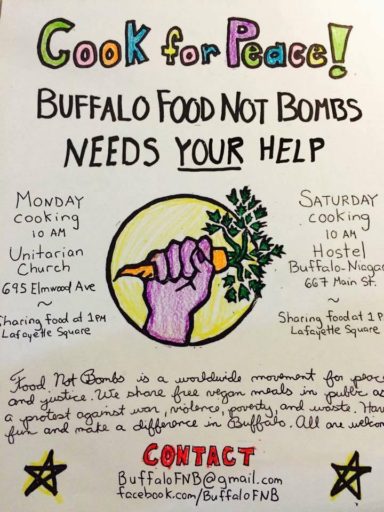 Cook for Peace!
BUFFALO FOOD NOT BOMBS
NEEDS YOUR HELP
MONDAY
cooking
10 AM
Unitarian
Church
695 Elmwood Ave
~
Sharing food at 1PM
Lafayette Square
SATURDAY
cooking
10 AM
Hostel
Buffalo-Niagar
667 Main St.
~
Sharing food at 1 P
Lafayette Square
Food Not Bombs is a worldwide movement for peac
and justice. We share free vegan meals in public as
a protest against war, violence, poverty, and waste. Have
fun and make a difference in Buffalo. All are welcom
CONTACT
BuffaloFNB@gmail.com
facebook.com/BuffaloFNB